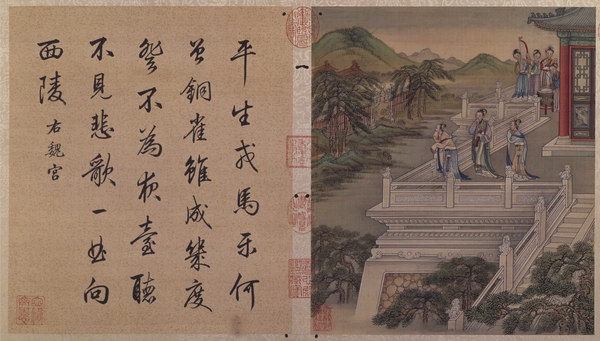 平生戎馬樂何
曾銅雀雖成幾度
登不為夜臺聽
不見悲歌一曲向
西陵 右魏宫